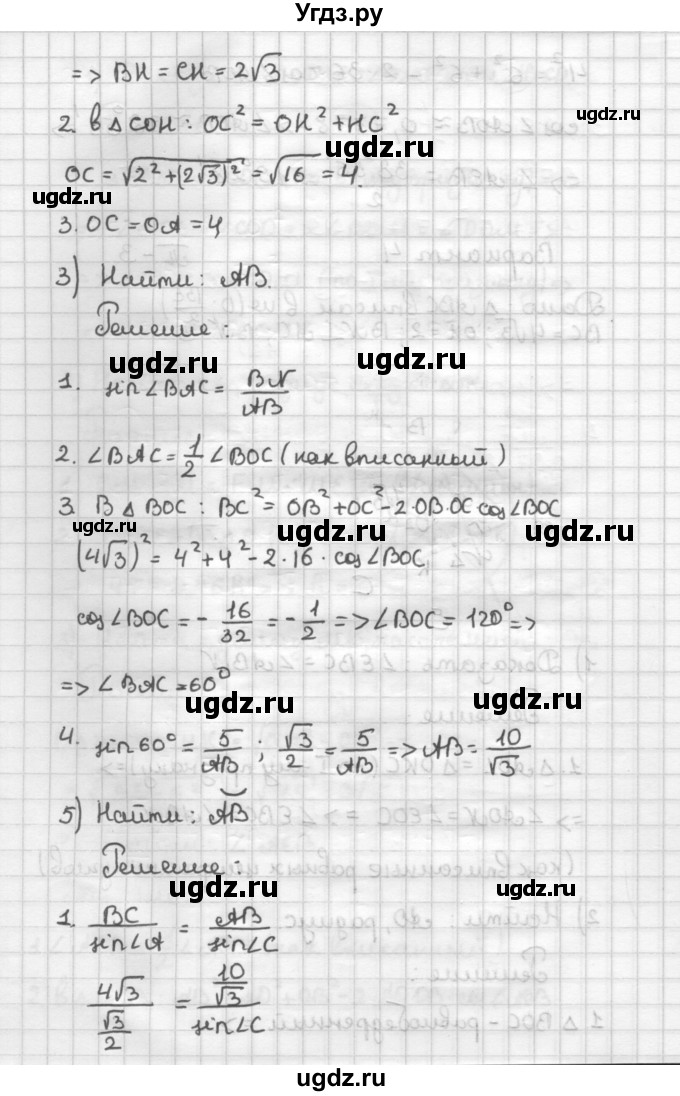 Угдз.ру
=> BH = CH = 2√3
ugdz.ru
2. в △ COH : OC² = OH² + HC²
ugdz.ru
OC = √(2² + (2√3)²) = √16 = 4.
ugdz.ru
3. OC = OA = 4
3) Найти : AB.
Решение :
ugdz.ru ugdz.ru
1. sin ∠BAC = BN/AB
2. ∠BAC = 1/2 ∠BOC ( как вписанный )
ugdz.ru
3. В △ BOC : BC² = OB² + OC² - 2·OB·OC cos ∠BOC
ugdz.ru ugdz.ru ugdz.ru
(4√3)² = 4² + 4² - 2·16 · cos ∠BOC
cos ∠BOC = - 16/32 = - 1/2 => ∠BOC = 120° =>
=> ∠ BAC = 60°
ugdz.ru ugdz.ru
4. sin 60° = 5/AB ; √3/2 = 5/AB => AB = 10/√3
ugdz.ru
5) Найти : AB
Решение :
ugdz.ru ugdz.ru
1. BC/sin∠A = AB/sin∠C
4√3/(√3/2) = (10/√3)/sin∠C
ugdz.ru ugdz.ru
ugdz.ru